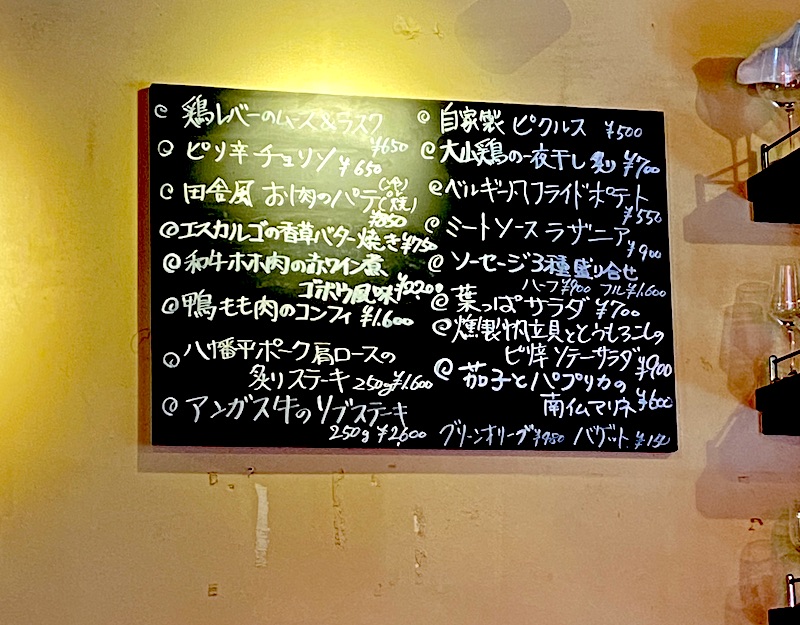 鶏レバーのムース&ラスク
¥650
ピリ辛チョリソ ¥650
田舎風 お肉のパテ
¥850
エスカルゴの香草バター焼き ¥750
和牛ホホ肉の赤ワイン煮
ゴボウ風味
鴨もも肉のコンフィ ¥1.600
八幡平ポーク肩ロースの
炙りステーキ 250g ¥1.600
アンガス牛のリブステーキ
250g ¥2,600
自家製 ピクルス ¥500
大山鶏の一夜干し 炙り ¥700
ベルギー風フライドポテト
¥550
ミートソースラザニア
¥900
ソーセージ3種盛り合せ
ハーフ¥900 フル¥1.600
葉っぱサラダ ¥700
燻製帆立貝ととうもろこしの
ピリ辛ソテーサラダ ¥900
茄子とパプリカの
南仏マリネ ¥600
グリーンオリーブ ¥450 バゲット ¥150